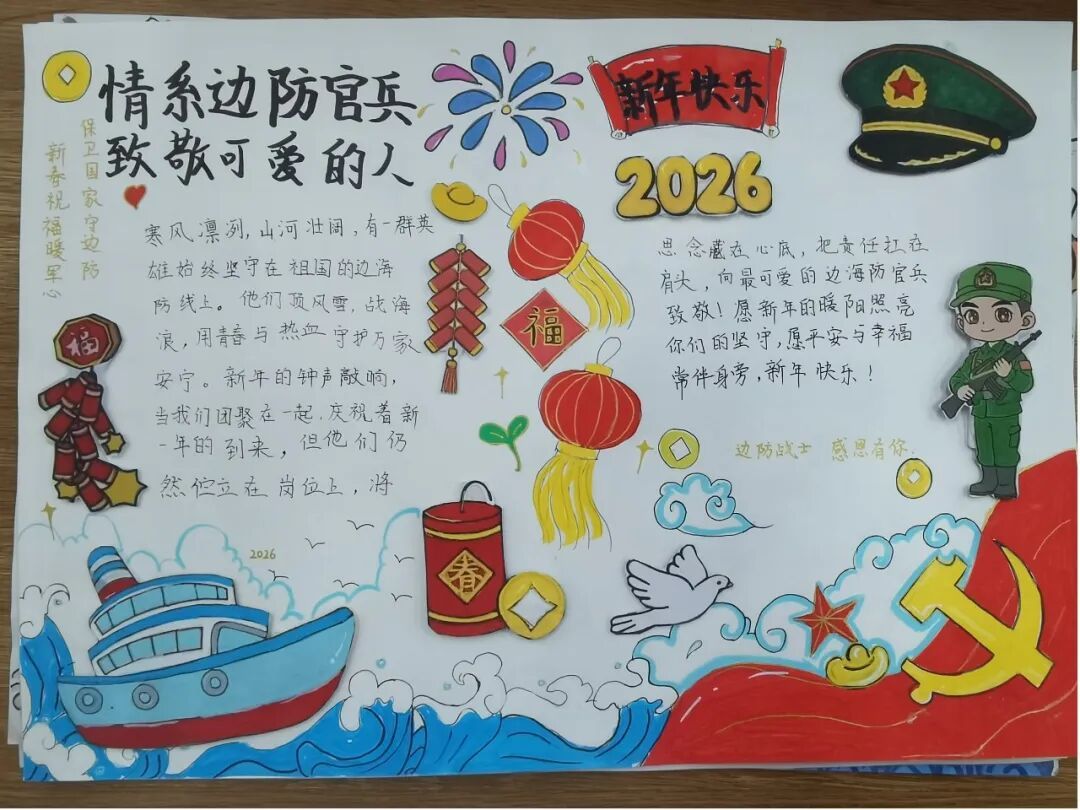 情系边防官兵
致敬可爱的人
保卫国家守边防
新春祝福暖军心
寒风凛冽,山河壮阔,有一群英
雄始终坚守在祖国的边海
防线上。他们顶风雪,战海
浪,用青春与热血守护万家
安宁。新年的钟声敲响,
当我们团聚在一起.庆祝着新
一年的到来,但他们仍
然伫立在岗位上,将
新年快乐
2026
思念藏在心底,把责任扛在
肩头,向最可爱的边海防官兵
致敬!愿新年的暖阳照亮
你们的坚守,愿平安与幸福
常伴身旁,新年快乐!
边防战士 感恩有你.
福
福
春
2026